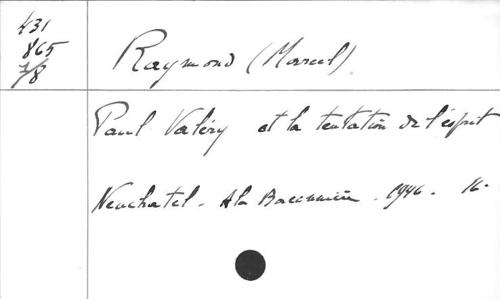 431
865
7/8
Raymond (Marcel)
Paul Valéry et la tentation de l'esprit
Neuchatel - A la Baconnière. 1946. 16.